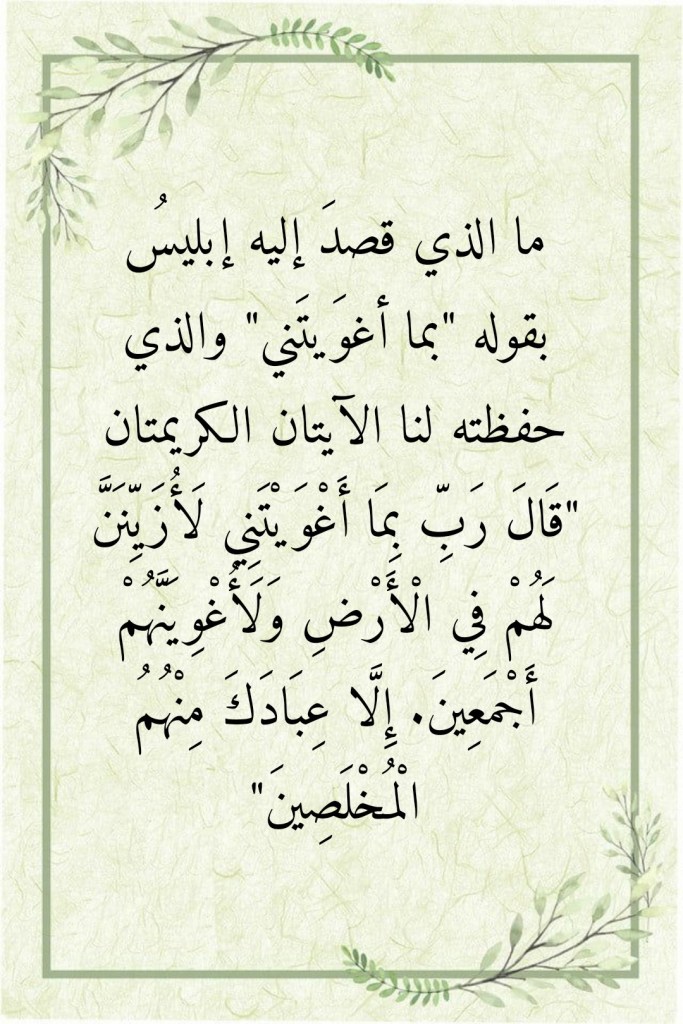 ما الذي قصدَ إليه إبليسُ
بقوله "بما أغوَيتَني" والذي
حفظته لنا الآيتان الكريمتان
"قَالَ رَبِّ بِمَا أَغْوَيْتَنِي لَأُزَيِّنَنَّ
لَهُمْ فِي الْأَرْضِ وَلَأُغْوِيَنَّهُمْ
أَجْمَعِينَ. إِلَّا عِبَادَكَ مِنْهُمُ
الْمُخْلَصِينَ"